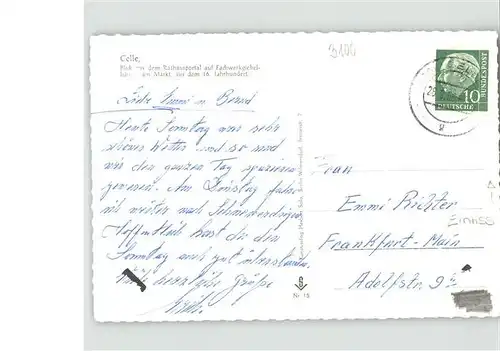 Celle,
Blick aus dem Rathausportal auf Fachwerkgiebel-
am Markt, aus dem 16. Jahrhundert.
3100
10
DEUTSCHE
BUNDESPOST
Liebe Emmi u. Bernd
Heute Sonntag war sehr
schönes Wetter und so sind
wir den ganzen Tag spazieren
gewesen. Am Dienstag fahren
wir weiter nach Schneverdingen.
Hoffentlich hast du den
Sonntag auch gut überstanden.
herzliche Grüße
Frau
Emmi Richter
Frankfurt-Main
Adolfstr. 9
Nr. 18